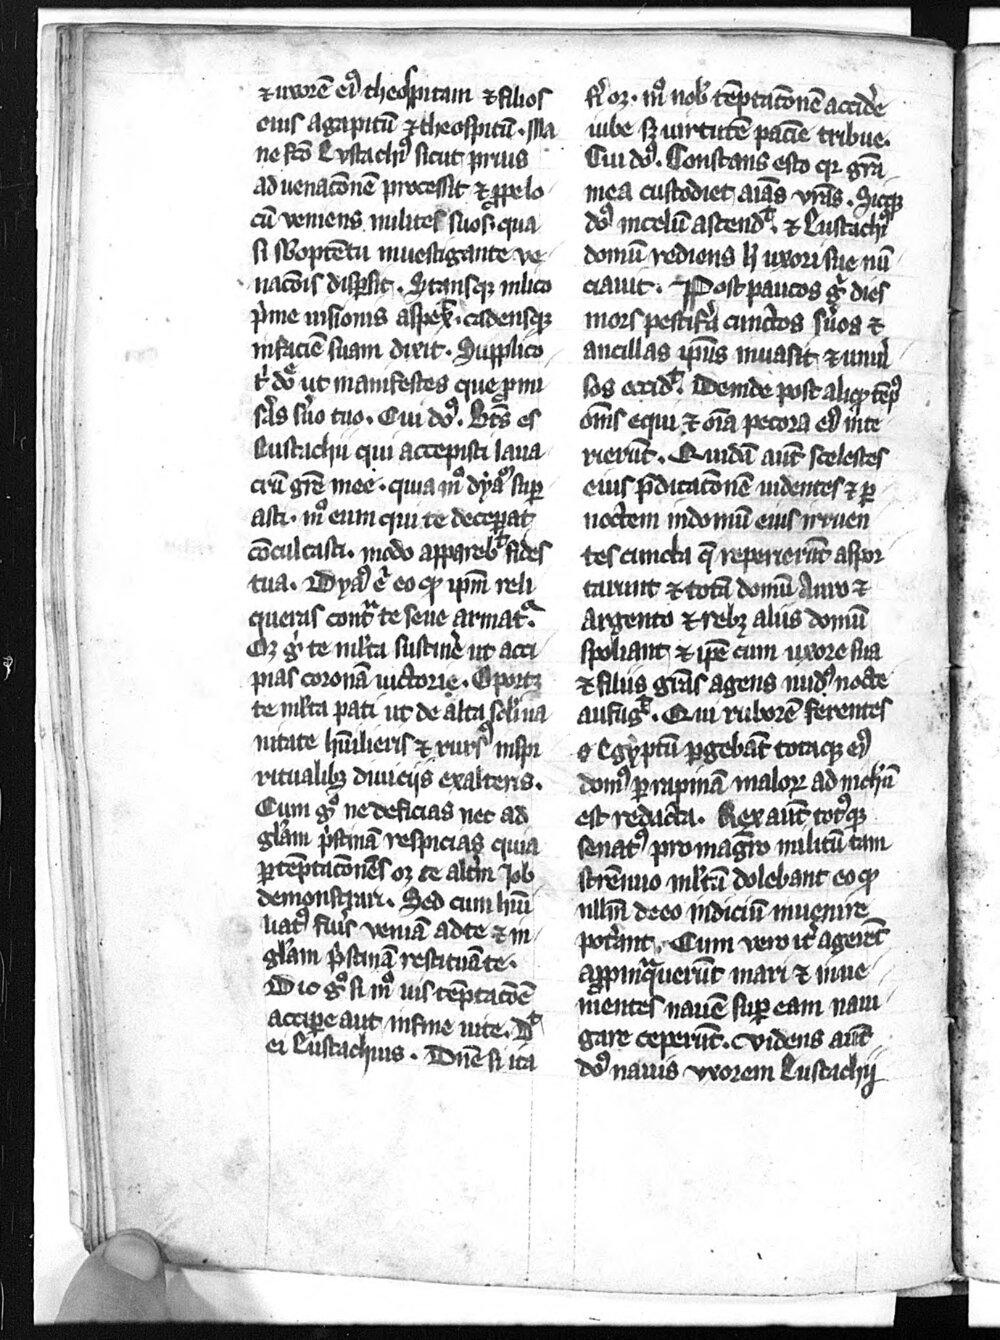 ⁊ uxorē eiꝰ theospitam ⁊ filios
eius agapitū ⁊ theospitū. Ma
ne fcō Eustachiꝰ sicut prius
ad venacōnē processit ⁊ ꝓpe lo
cū veniens milites suos qua
si sb optentu inuestigante ve
nacōis dispsit. Stansqꝫ in loco
pͥme visionis cadensqꝫ
in faciē suam dixit. Supplico
tͥ dn̄e ut manifestes que ꝓmi
sͥas sͥuo tuo. Cui dn̄s. Btū̄s es
Eustachii qui accepisti laua
crū grē mee. quia mͦ dyabꝰ sup
asti. mͦ eum qui te deceꝑat
cōculcasti. modo apparebͭ fides
tua. Dyabꝰ eͥ eo qꝫ ipm̄ reli
queris contͣ te seue armatͬ.
Oꝫ gͦ te mlta sustinēͤ ut acci
pias coronā victorie. Oportꝫ
te mlta pati ut de alta sclī va
nitate hūilieris ⁊ rursꝰ in spi
ritualibꝫ diuicijs exalteris.
Cum gͦ ne deficias nec ad
glām pͥstinā respicias quia
ꝑ tēptacōnes oꝫ te altͫ Job
demonstrari. Sed cum hūi
liatꝰ fuͥis veniā ad te ⁊ in
glām pͥstinā restituā te.
Dic gͦ si mͦ vis tēptacōē
accipe aut in fine vite. Dͭ
ei Eustachius. Dn̄e si ita
fͥi oꝫ. mͦ nobͥ tēptacōnē accidͤe
iube sꝫ virtutē pacīe tribue.
Cui dn̄s. Constans esto qͥ grā
mea custodiet aīas vrās. Sicqꝫ
dn̄s in celū ascendͭ. ⁊ Eustachiꝰ
domū rediens h uxori sue nū
ciauit. Post paucos gͦ dies
mors pestifͤa cunctos sͥuos ⁊
ancillas ipiꝰ inuasit ⁊ uniuͥ
sos occidͭ. Deinde post aliqͦ tēpꝰ
om̄s equi ⁊ oīa pecora eiꝰ inte
rierūt. Quidā aūt scelestes
eius p̄dicacōnē videntes ⁊ ꝑ
noctem in domū eius irruen
tes cuncta q̄ repererūt aspor
tarunt ⁊ totā domū Auro ⁊
Argento ⁊ rebꝫ aliis domū
spoliant ⁊ ipē cum uxore sua
⁊ filiis grās agens nudꝰ nocte
aufugͭ. Qui ruborē ferentes
Egyptū ꝑgebāt totaqꝫ eiꝰ
domꝰ ꝑ rapinā maloꝝ ad nichͥū
est redacta. Rex aūt totꝰqꝫ
senatꝰ pro magrō militū tam
strēnuo mltū dolebant eo qꝫ
nllm̄ de eo indiciū inuenire
potͤant. Cum vero itͬ agerēt
appinquͣerūt mari ⁊ inue
nientes nauē sup eam naui
gare ceperūt. Videns aūt
dn̄s nauis vxorem Eustachij